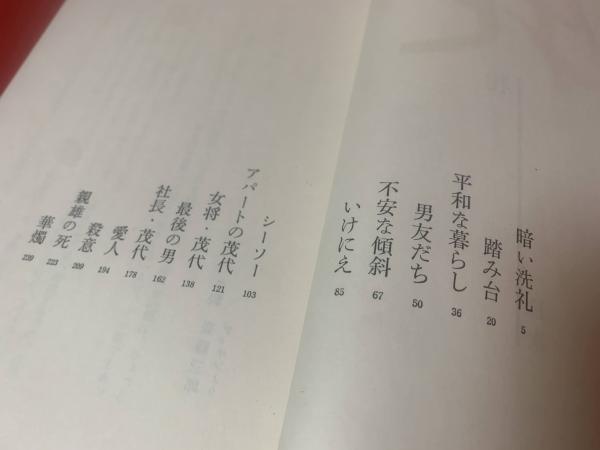 暗い洗礼 5
踏み台 20
平和な暮らし 36
男友だち 50
不安な傾斜 67
いけにえ 85
シーソー 103
アパートの茂代 121
女将・茂代 138
最後の男 162
社長・茂代 178
愛人 194
殺意 209
親雄の死 223
華燭 239